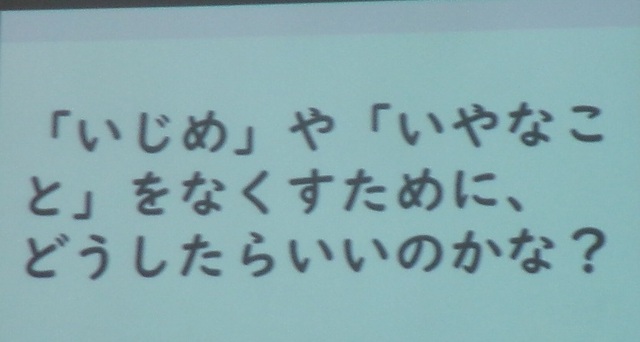 「いじめ」や「いやなこ
と」をなくすために、
どうしたらいいのかな？